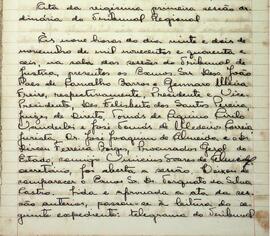 Ata da vigésima primeira sessão or
dinária do Tribunal Regional
Às nove horas do dia vinte e dois de
novembro de mil novecentos e quarenta e
seis, na sala das sessões do Tribunal de
Justiça, presentes os Exmos Srs. Des. João
Paes de Carvalho Barros e Gennaro
Freire, respectivamente, Presidente e Vice-
Presidente, Des. Felisberto dos Santos Pereira,
juizes de direito, Tomás de Aquino Cirilo
Wanderley e José Tomás de Medeiros Correia
jurista Dr. José Joaquim de Almeida, e o
Ferreira Procurador Geral do
Estado, comigo Vinicius Soares de Almeida
secretário, foi aberta a sessão. Deixou de
comparecer o Exmo Sr. Dr. da Silva
Castro. Lida e aprovada a ata da ses
são anterior, passou-se à leitura do se
guinte expediente: telegrama do Tribunal